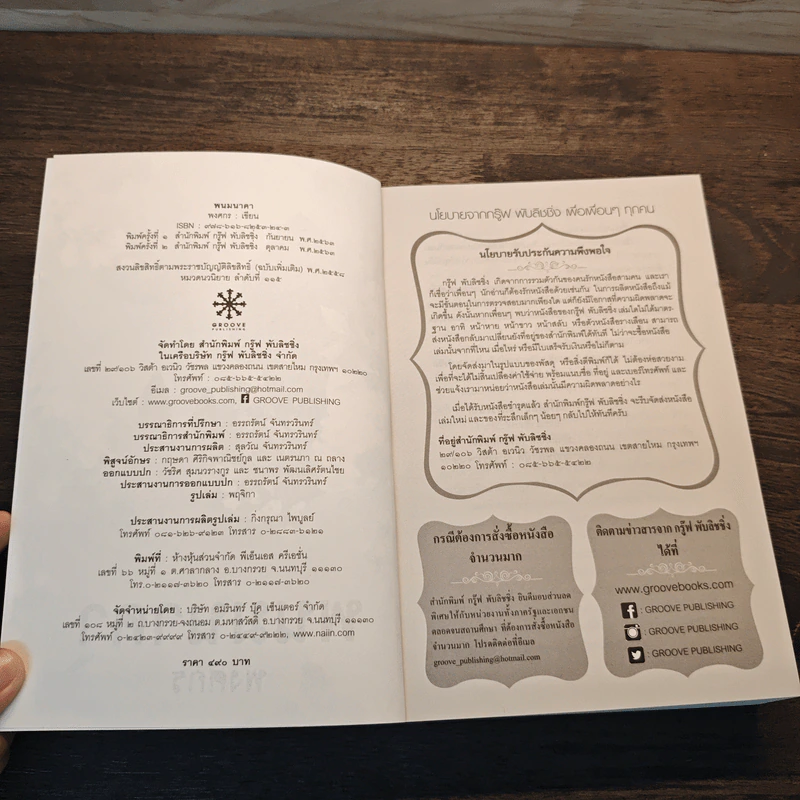 พนมนาคา
พงศกร : เขียน
ISBN : ๙๗๘-๖๑๖-๘๒๕๓-๒๔-๓
พิมพ์ครั้งที่ ๑ สำนักพิมพ์ กรู๊ฟ พับลิชชิ่ง กันยายน พ.ศ.๒๕๖๓
พิมพ์ครั้งที่ ๒ สำนักพิมพ์ กรู๊ฟ พับลิชชิ่ง ตุลาคม พ.ศ.๒๕๖๓
สงวนลิขสิทธิ์ตามพระราชบัญญัติลิขสิทธิ์ (ฉบับเพิ่มเติม) พ.ศ.๒๕๕๘
หมวดนวนิยาย ลำดับที่ ๑๑๕
GROOVE
PUBLISHING
จัดทำโดย สำนักพิมพ์ กรู๊ฟ พับลิชชิ่ง
ในเครือบริษัท กรู๊ฟ พับลิชชิ่ง จำกัด
เลขที่ ๒๙/๑๐๖ วิสต้า อเวนิว วัชรพล แขวงคลองถนน เขตสายไหม กรุงเทพฯ ๑๐๒๒๐
โทรศัพท์ : ๐๘๕-๖๖๕-๕๔๒๒
อีเมล : groove_publishing@hotmail.com
เว็บไซต์ : www.groovebooks.com, GROOVE PUBLISHING
บรรณาธิการที่ปรึกษา : อรรถรัตน์ จันทรวรินทร์
บรรณาธิการสำนักพิมพ์ : อรรถรัตน์ จันทรวรินทร์
ประสานงานการผลิต : สุลวัณ จันทรวรินทร์
พิสูจน์อักษร : กฤษดา ศิริกิจพาณิชย์กูล และ เนตรนภา ณ ถลาง
ออกแบบปก : วัชริศ สุมนวรางกูร และ ชนาพร พัฒนเลิศรัตนไชย
ประสานงานการออกแบบปก : อรรถรัตน์ จันทรวรินทร์
รูปเล่ม : พฤจิกา
ประสานงานการผลิตรูปเล่ม : กิ่งกรุณา ไพบูลย์
โทรศัพท์ ๐๘๑-๖๒๖-๙๑๒๓ โทรสาร ๐-๒๘๘๓-๕๒๑๒
พิมพ์ที่ : ห้างหุ้นส่วนจำกัด พีเอ็นเอส ครีเอชั่น
เลขที่ ๖๖ หมู่ที่ ๑ ต.ศาลากลาง อ.บางกรวย จ.นนทบุรี ๑๑๑๓๐
โทร.๐-๒๑๑๗-๓๖๒๐ โทรสาร ๐-๒๑๑๗-๓๖๒๐
จัดจำหน่ายโดย : บริษัท อมรินทร์ บุ๊ค เซ็นเตอร์ จำกัด
เลขที่ ๑๐๘ หมู่ที่ ๒ ถ.บางกรวย-จงถนอม ต.มหาสวัสดิ์ อ.บางกรวย จ.นนทบุรี ๑๑๑๓๐
โทรศัพท์ ๐-๒๔๒๓-๙๙๙๙ โทรสาร ๐-๒๔๔๙-๙๒๒๒, www.naiin.com
ราคา ๔๙๐ บาท
นโยบายจากกรู๊ฟ พับลิชชิ่ง เพื่อเพื่อนๆ ทุกคน
นโยบายรับประกันความพึงพอใจ
กรู๊ฟ พับลิชชิ่ง เกิดจากการรวมตัวกันของคนรักหนังสือสามคน และเรา
ก็เชื่อว่าเพื่อนๆ นักอ่านก็ต้องรักหนังสือด้วยเช่นกัน ในการผลิตหนังสือถึงแม้
จะมีขั้นตอนในการตรวจสอบมากเพียงใด แต่ก็ยังมีโอกาสที่ความผิดพลาดจะ
เกิดขึ้น ดังนั้นหากเพื่อนๆ พบว่าหนังสือของกรู๊ฟ พับลิชชิ่ง เล่มใดไม่ได้มาตร-
ฐาน อาทิ หน้าหาย หน้าขาว หน้าสลับ หรือตัวหนังสือรางเลือน สามารถ
ส่งหนังสือกลับมาเปลี่ยนยังที่อยู่ของสำนักพิมพ์ได้ทันที ไม่ว่าจะซื้อหนังสือ
เล่มนั้นจากที่ไหน เมื่อไหร่ หรือมีใบเสร็จรับเงินหรือไม่ก็ตาม
โดยจัดส่งมาในรูปแบบของพัสดุ หรือสิ่งตีพิมพ์ก็ได้ ไม่ต้องห่อสวยงาม
เพื่อที่จะได้ไม่สิ้นเปลืองค่าใช้จ่าย พร้อมแนบชื่อ ที่อยู่ และเบอร์โทรศัพท์ และ
ช่วยแจ้งเรามาหน่อยว่าหนังสือเล่มนั้นมีความผิดพลาดอย่างไร
เมื่อได้รับหนังสือชำรุดแล้ว สำนักพิมพ์กรู๊ฟ พับลิชชิ่ง จะรีบจัดส่งหนังสือ
เล่มใหม่ และของที่ระลึกเล็กๆ น้อยๆ กลับไปให้ทันทีครับ
ที่อยู่สำนักพิมพ์ กรู๊ฟ พับลิชชิ่ง
๒๙/๑๐๖ วิสต้า อเวนิว วัชรพล แขวงคลองถนน เขตสายไหม กรุงเทพฯ
๑๐๒๒๐ โทรศัพท์ : ๐๘๕-๖๖๕-๕๔๒๒
กรณีต้องการสั่งซื้อหนังสือ
จำนวนมาก
สำนักพิมพ์ กรู๊ฟ พับลิชชิ่ง ยินดีมอบส่วนลด
พิเศษให้กับหน่วยงานทั้งภาครัฐและเอกชน
ตลอดจนสถานศึกษา ที่ต้องการสั่งซื้อหนังสือ
จำนวนมาก โปรดติดต่อที่อีเมล
groove_publishing@hotmail.com
ติดตามข่าวสารจาก กรู๊ฟ พับลิชชิ่ง
ได้ที่
www.groovebooks.com
: GROOVE PUBLISHING
: GROOVE PUBLISHING
: GROOVE PUBLISHING